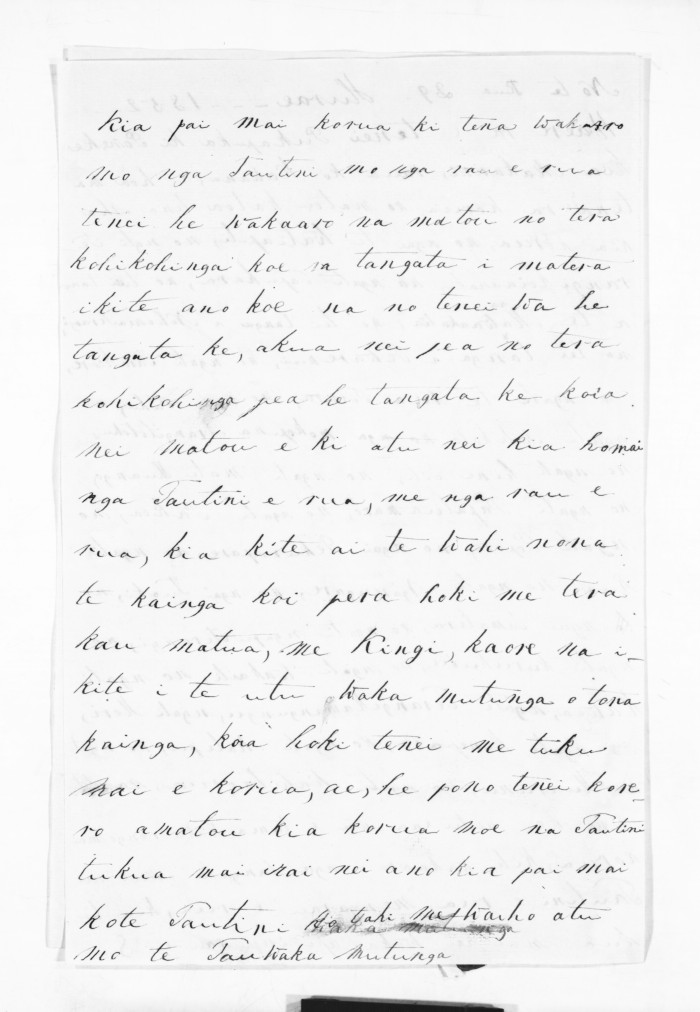 kia pai mai korua ki tena wakaaro
mo nga Tautini mo nga rau e rua
tenei he wakaaro na matou no tera
kohikohinga koe ra tangata i matera
ikite ano koe na no tenei wa he
tangata ke, akua nei pea no tera
kohikohinga pea he tangata ke koia
nei matou e ki atu nei kia homai
nga Tautini e rua, me nga rau e
rua, kia kite ai te wahi nona
te kainga koi pera hoki me tera
kau matua, me Kingi, kaore na i-
kite i te utu waka mutunga o tona
kainga, koia hoki tenei me tuku
mai e korua, ae, he pono tenei kore-
ro amatou kia korua moe na Tautini
tukua mai irai nei ano kia pai mai
kote Tautini waho atu
mo te Tau waka mutunga